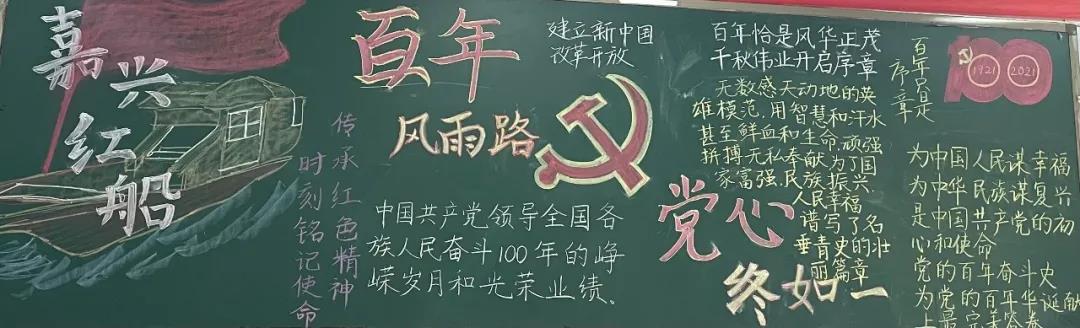 嘉兴红船
传承红色精神
时刻铭记使命
百年
风雨路
建立新中国
改革开放
中国共产党领导全国各
族人民奋斗100年的峥
嵘岁月和光荣业绩。
百年恰是风华正茂
千秋伟业开启序章
无数感天动地的英
雄模范,用智慧和汗水
甚至鲜血和生命,顽强
拼搏无私奉献,为了国
家富强,民族振兴,
人民幸福
谱写了名
垂青史的壮
丽篇章
党心
终如一
百年只是
序章
100
1921 2021
为中国人民谋幸福
为中华民族谋复兴
是中国共产党的初
心和使命
党的百年奋斗史
为党的百年华诞献
上最完美答卷